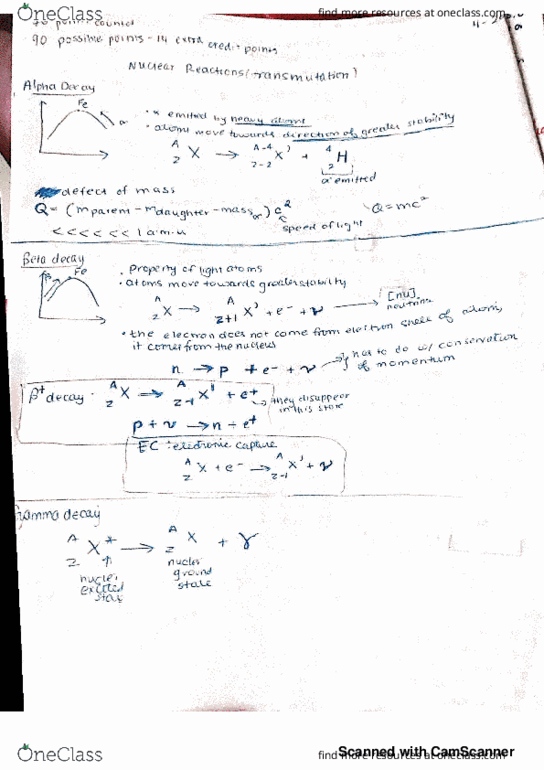 OneClass
find more resources at oneclass.com
90 possible points - 14 extra credit points
Nuclear Reactions (transmutation)
Alpha Decay
Fe
α
• α emited by heavy atoms
• atoms move towards direction of greater stability
A Z X → A-4 Z-2 X' + 4 2 H
α emitted
defect of mass
Q = (mparent - mdaughter - mass α) c²
Q = mc²
c speed of light
<<<<<< 1 a.m.u
Beta decay
Fe
β
• Property of light atoms
• atoms move towards greater stability
A Z X → A Z+1 X' + e⁻ + ν → [nu]
• the electron does not come from electron shell of atom,
it comes from the nucleus
n → p + e⁻ + ν } has to do w/ conservation
of momentum
β⁺ decay · A Z X → A Z-1 X' + e⁺
→ they disappear
in this
p + ν → n + e⁺
EC : electronic capture
A Z X + e⁻ → A Z-1 X' + ν
Gamma decay
A Z X* → A Z X + γ
excited
ground
state
OneClass
Scanned with CamScanner
find more resources at oneclass.com